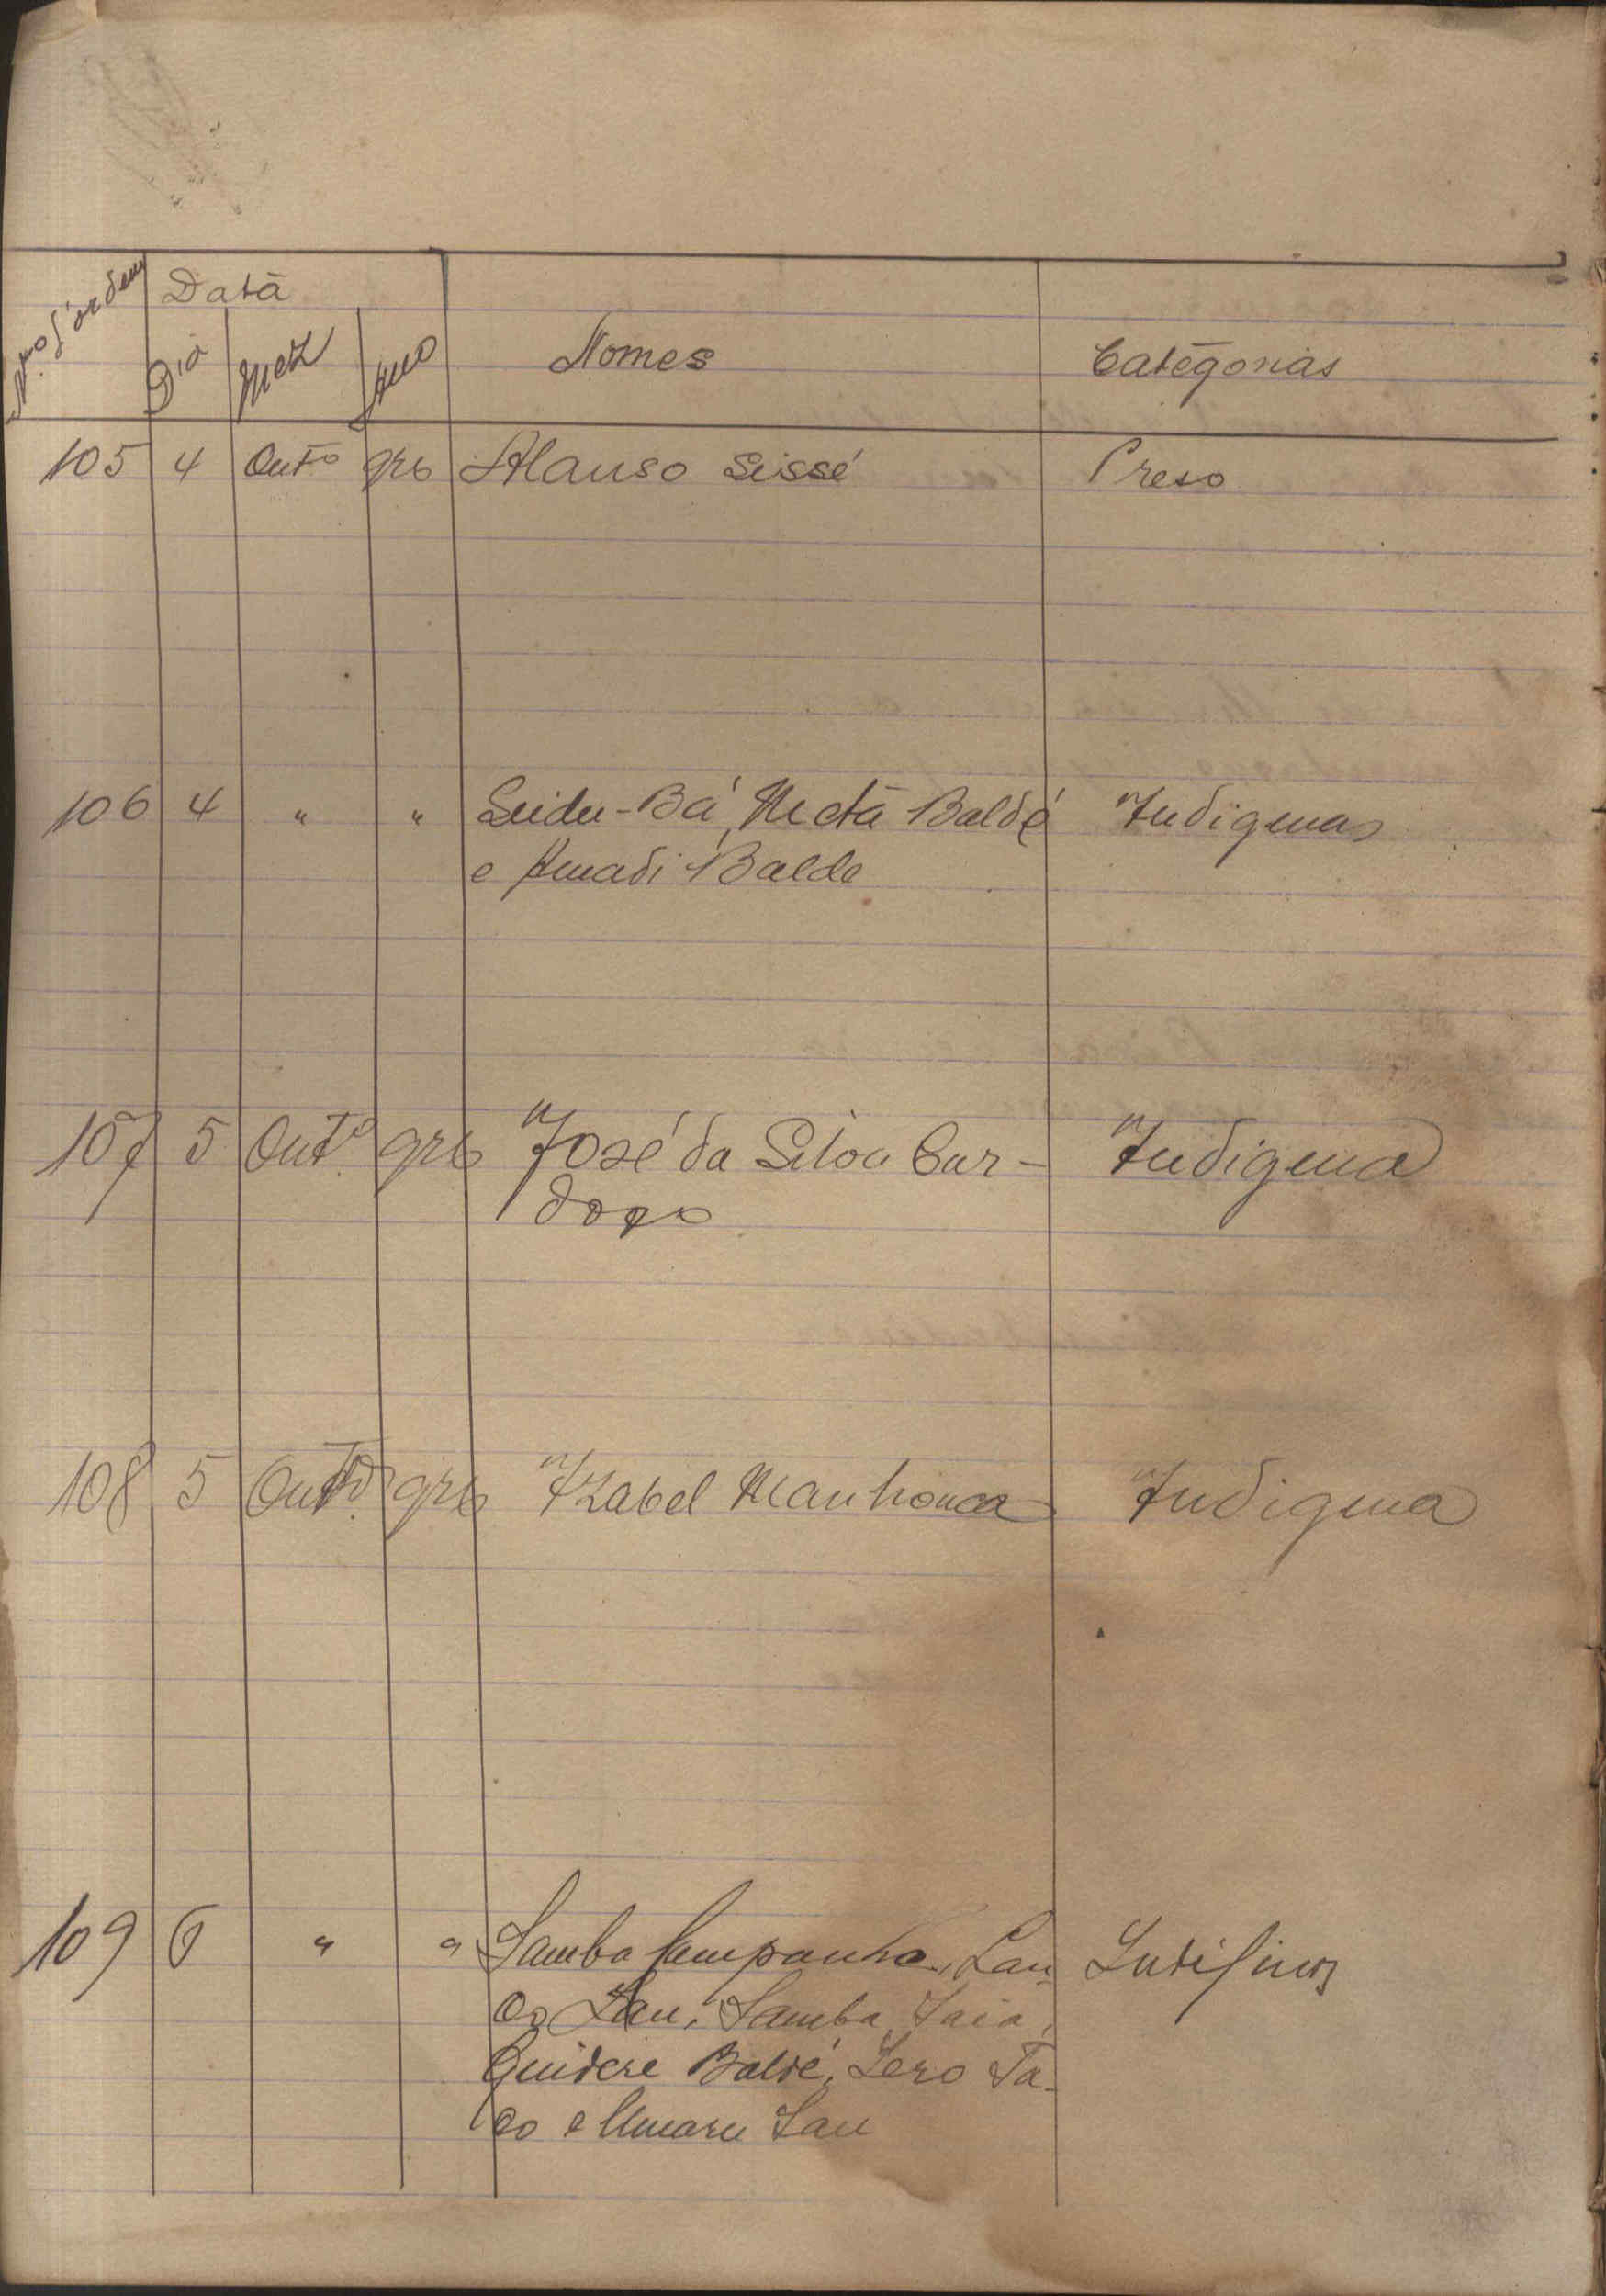 Nº d'ordem Data
Dia Mez Ano Nomes Categorias
105 4 Outº 926 Alanso Sissé Preso
106 4 " " Seidu-Bá, Mctá Baldé Indigenas
e Amadi Balde
107 5 Outº 926 José da Silva Car-
dozo Indigena
108 5 Outº 926 Izabel Manhonca Indigena
109 6 " " Samba Companha, Lan- Indigenas
Samba Saia,
Guidere Baldé, Sero Ta-
co e Umaru Sau